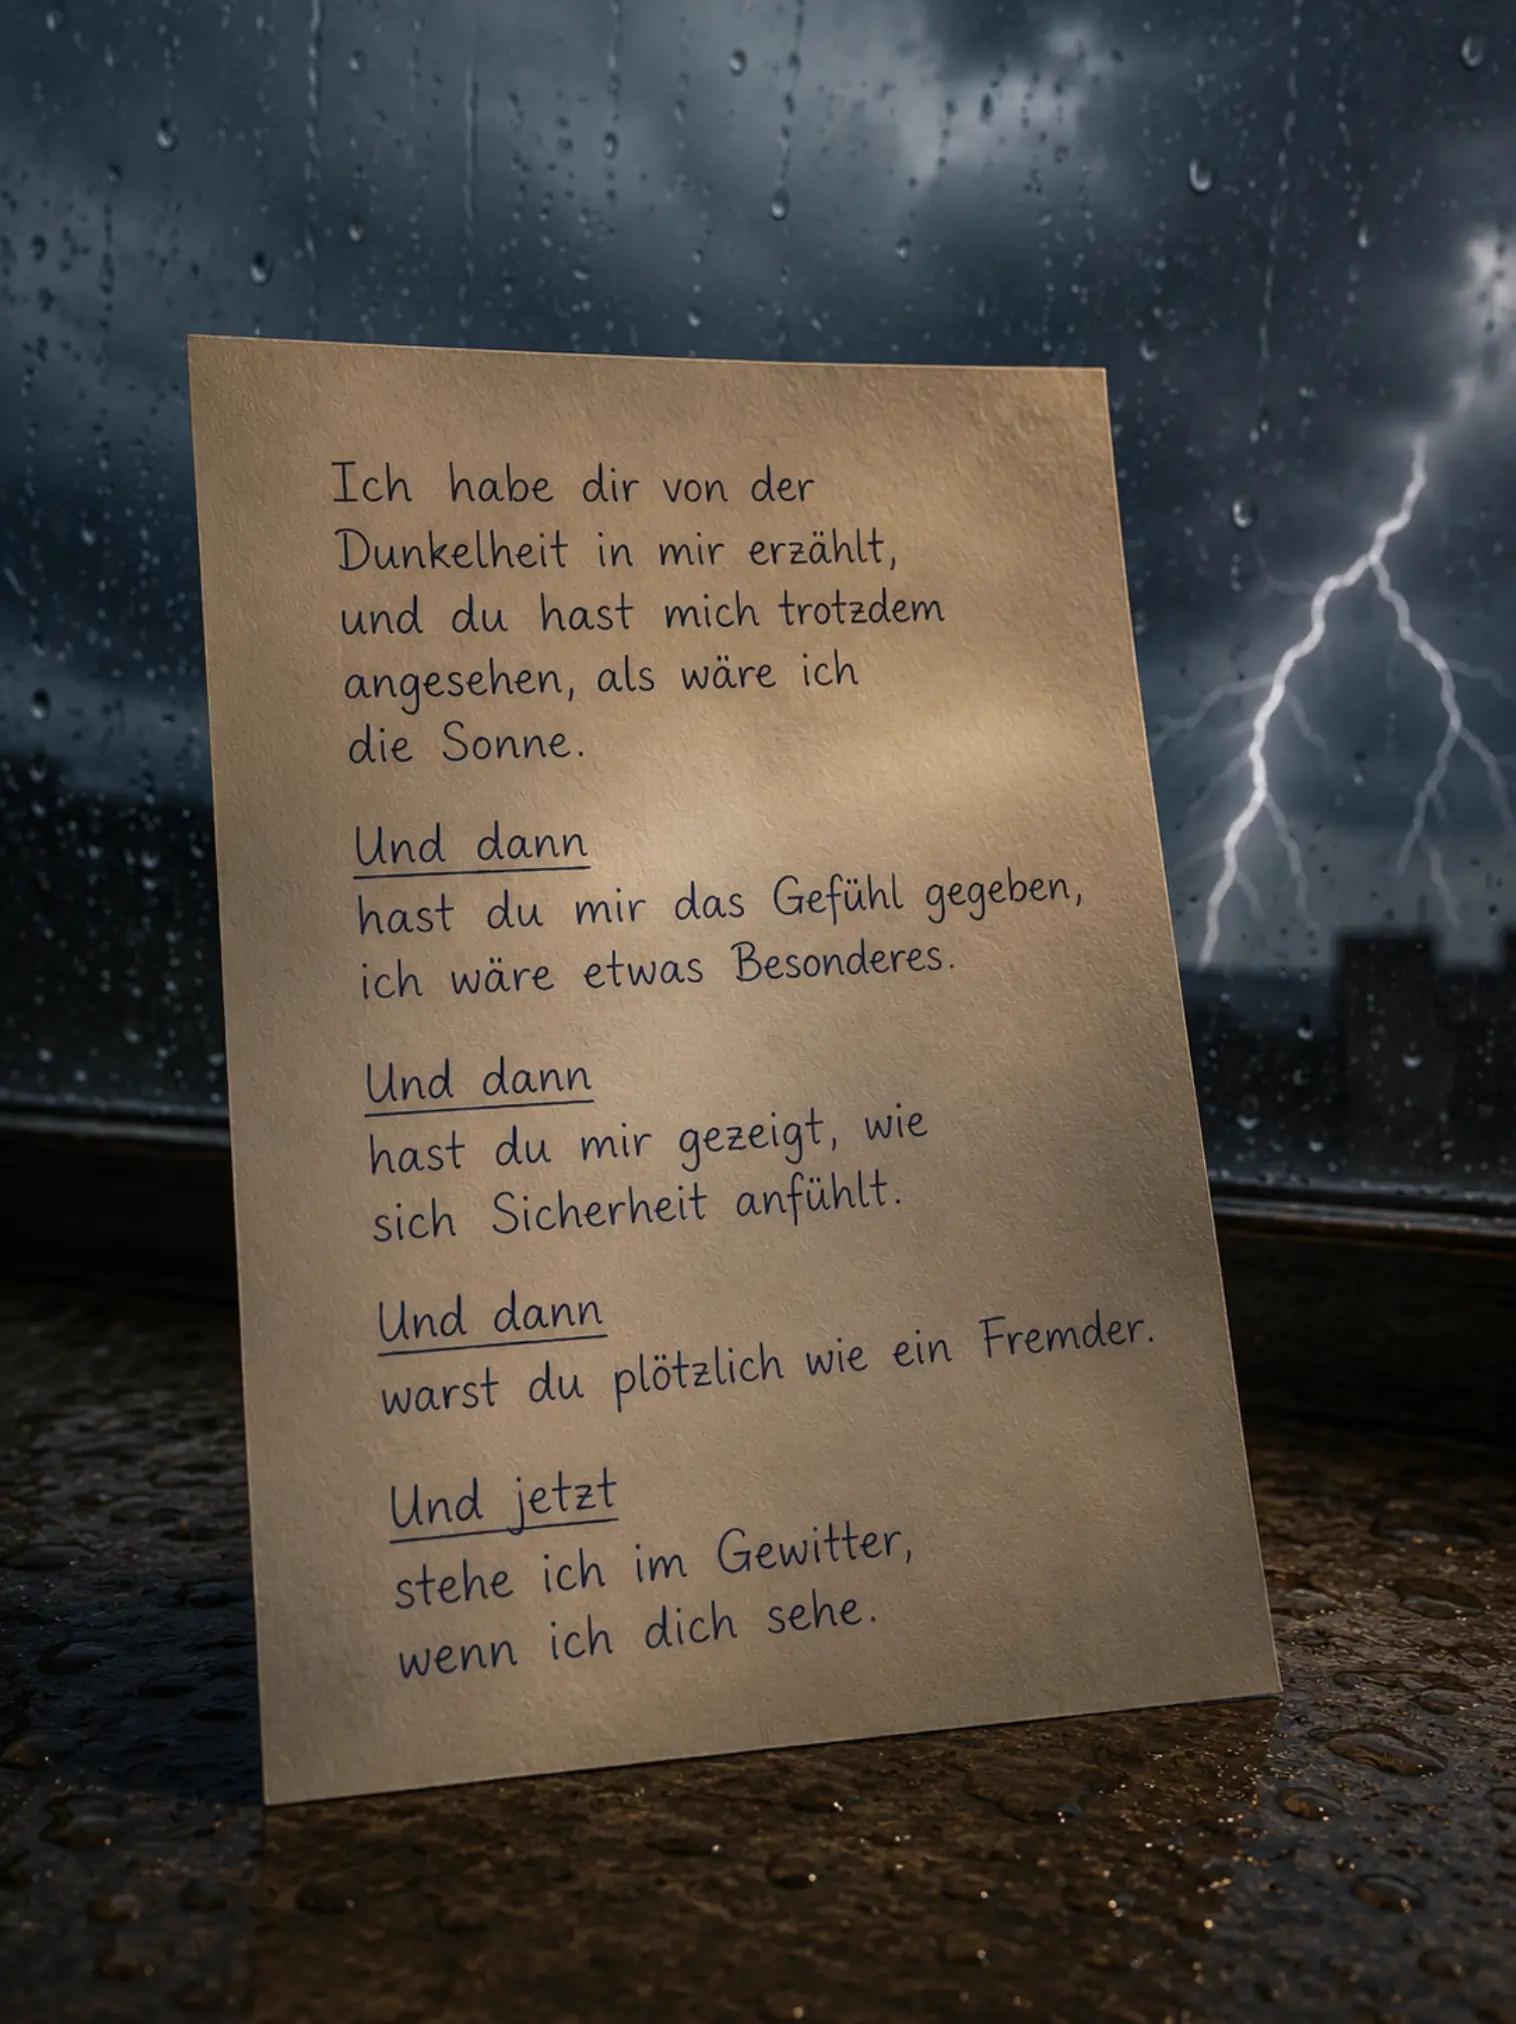 Ich habe dir von der
Dunkelheit in mir erzählt,
und du hast mich trotzdem
angesehen, als wäre ich
die Sonne.
Und dann
hast du mir das Gefühl gegeben,
ich wäre etwas Besonderes.
Und dann
hast du mir gezeigt, wie
sich Sicherheit anfühlt.
Und dann
warst du plötzlich wie ein Fremder.
Und jetzt
stehe ich im Gewitter,
wenn ich dich sehe.